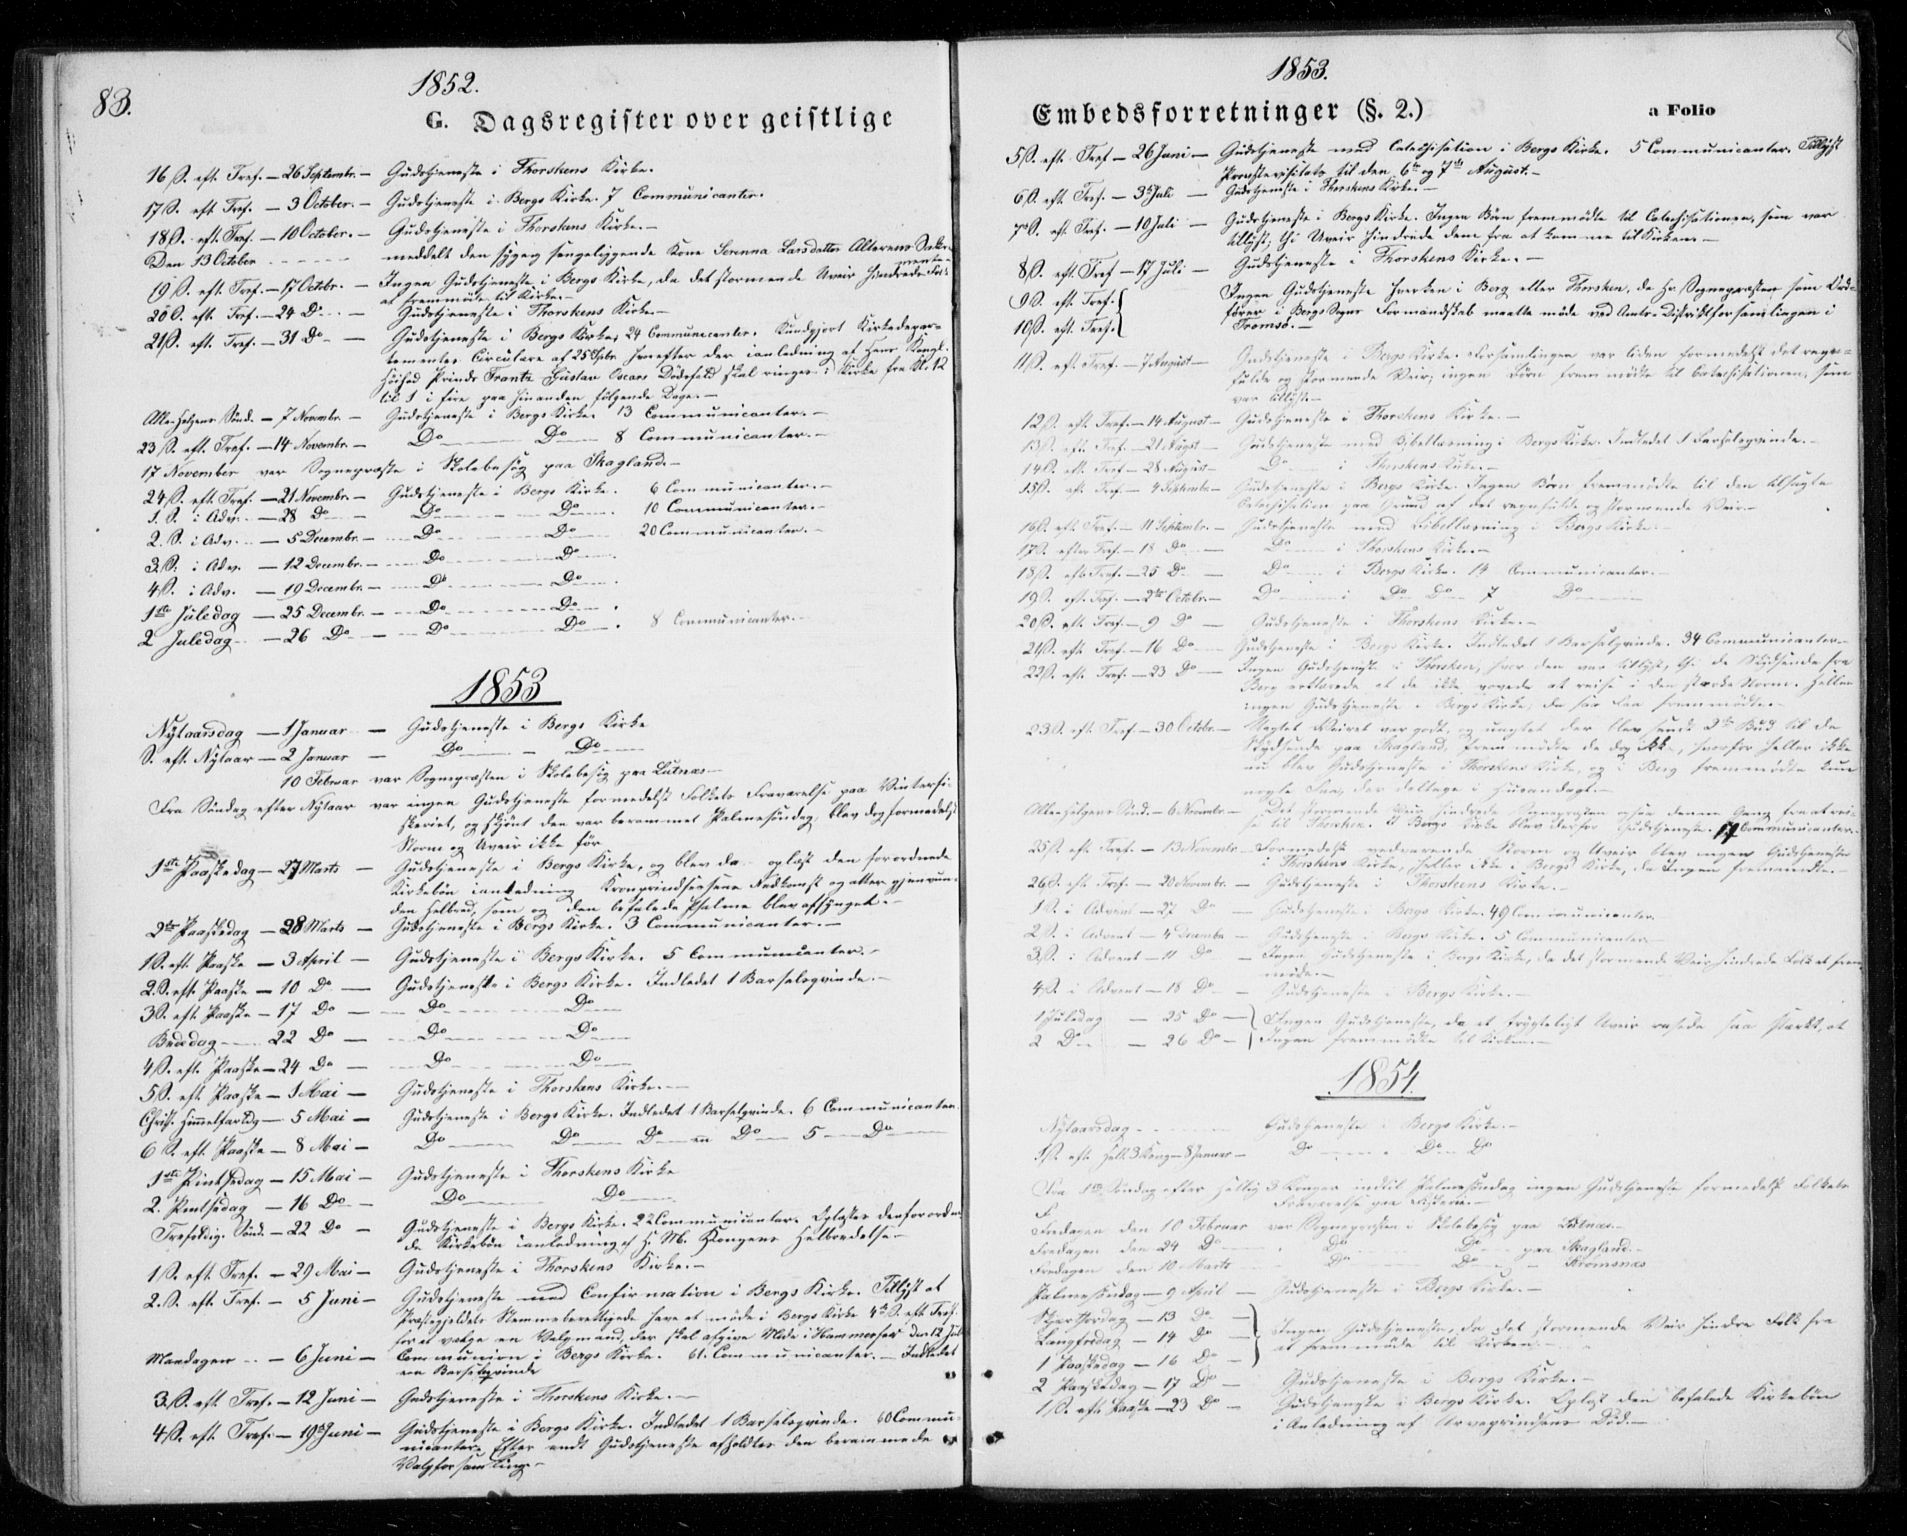 83.
1852.
G. Dagsregister over geistlige
16 S. eft. Tref. — 26 Septembr. — Gudstjeneste i Thorskens Kirke.
17 S. eft. Tref. — 3 October. — Gudstjeneste i Bergs Kirke. 7 Communicanter.
18 S. eft. Tref. — 10 October. — Gudstjeneste i Thorskens Kirke. —
Den 13 October - - - - - meddelt den sygeng sengeliggende Kone Serenna Larsdatter Alterens Sakra-
mente
19 S. eft. Tref. — 17 Octobr. — Ingen Gudstjeneste i Bergs Kirke, da det stormende Uveir hindrede Folk
at fremmøde til Kirke. —
20 S. eft. Tref. — 24 Do — Gudstjeneste i Thorskens Kirke. —
21 S. eft. Tref. — 31 Do — Gudstjeneste i Bergs Kirke, 24 Communicanter. Kundgjort Kirkedepar-
tementes Circulaire af 25 Septbr. hvorefter der i anledning af Hans Kongl.
Høihed Prinds Frantz Gustav Oscars Dødsfald skal ringes i Kirke fra Kl. 12
til 1 i fire paa hinanden følgende Dage. —
Alle Helgens Sønd. — 7 Novembr. — Gudstjeneste i Bergs Kirke. 13 Communicanter. —
23 S. eft. Tref. — 14 Novembr. — Do — Do — 8 Communicanter. —
17 November var Sognepræste i Skolebesøg paa Skagland. —
24 S. eft. Tref. — 21 Novembr. — Gudstjeneste i Bergs Kirke. 6 Communicanter. —
1. S. i Adv. — 28 Do — Do — Do. 10 Communicanter. —
2. S. i Adv. — 5 Decembr. — Do — Do 20 Communicanter. —
3. S. i Adv. — 12 Decembr. — Do — Do
4. S. i Adv. — 19 Decembr. — Do — Do.
1ste Juledag — 25 Decembr. — Do — Do.
2 Juledag — 26 Do — Do — Do. 8 Communicanter. —
1853
Nytaarsdag — 1 Januar — Gudstjeneste i Bergs Kirke
S. eft. Nytaar — 2 Januar — Do — Do
10 Februar var Sognepræsten i Skolebesøg paa Lutnæs —
Fra Søndag efter Nytaar var ingen Gudstjeneste formedelst Folkets Fraværelse paa Vinterfi-
skeriet, og skjønt den var berammet Palmesøndag, blev dog formedelst
Storm og Uveir ikke før
1ste Paaskedag — 27 Marts — Gudstjeneste i Bergs Kirke, og blev da oplæst den forordnede
Kirkebøn i anledning Kronprindsessens Nedkomst og atter gjenvun-
den Helbred, som og den befalede Psalme blev afsjunget. —
2den Paaskedag — 28 Marts — Gudstjeneste i Bergs Kirke. 3 Communicanter. —
1 S. eft. Paaske — 3 April — Gudstjeneste i Bergs Kirke. 5 Communicanter. —
2. S. eft. Paaske — 10 Do — Gudstjeneste i Bergs Kirke. Indledet 1 Barselqvinde. —
3 S. eft. Paaske — 17 Do — Do — Do
Bededag — 22 Do — Do — Do
4 S. eft. Paaske — 24 Do — Do — Do
5 S. eft. Paaske — 1 Mai — Gudstjeneste i Thorskens Kirke. —
Christ. Himmelfartsdg — 5 Mai — Gudstjeneste i Bergs Kirke. Indledet 1 Barselqvinde. 6 Communicanter.
6 S. eft. Paaske — 8 Mai — Do — Do — Do en Do — 5 — Do
1ste Pintsedag — 15 Mai — Gudstjeneste i Thorskens Kirke
2. Pintsedag — 16 Do — Do — Do
Trefoldig. Sønd. — 22 Do — Gudstjeneste i Bergs Kirke. 22 Communicanter. Oplæstes den forordne-
de Kirkebøn i anledning af H. M. Kongens Helbredelse —
1 S. eft. Tref. — 29 Mai — Gudstjeneste i Thorskens Kirke. —
2. S. eft. Tref. — 5 Juni — Gudstjeneste med Confirmation i Bergs Kirke. Tillyst at
Præstegjeldets Stemmeberettigede have at møde i Bergs Kirke 4de S. eft. Tref.
for at vælge en Valgmand, der skal afgive Møde i Hammerfest den 12 Juli
Mandagen — 6 Juni — Communion i Bergs Kirke. 61 Communicanter. — Indledet
en Barselqvinde
3. S. eft. Tref. — 12 Juni — Gudstjeneste i Thorskens Kirke. —
4 S. eft. Tref. — 19 Juni — Gudstjeneste i Bergs Kirke. Indledet 1 Barselqvinde. 10 Commu-
nicanter. Efter endt Gudstjeneste afholdtes den berammede
Valgforsamling. —
1853.
Embedsforretninger (§. 2.)
a Folio
5 S. eft. Tref — 26 Juni — Gudstjeneste med Catechisation i Bergs Kirke. 5 Communicanter. Tillyst
Provstevisitats til den 6te og 7de August. —
6 S. eft. Tref. — 3 Juli — Gudstjeneste i Thorskens Kirke. —
7 S. eft. Tref. — 10 Juli — Gudstjeneste i Bergs Kirke. Ingen Børn fremmødte til Catechisationen, som var
tillyst, thi Uveir hindrede dem fra at komme til Kirken —
8 S. eft. Tref — 17 Juli — Gudstjeneste i Thorskens Kirke. —
9 S. eft. Tref. Ingen Gudstjeneste hverken i Berg eller Thorsken, da Hr. Sognepræsten som Ord-
fører i Bergs Sogns Formandskab maatte møde ved Amts-Distriktforsamlingen i
10 S. eft. Tref. Tromsø. —
11 S. eft. Tref. — 7 August — Gudstjeneste i Bergs Kirke. Forsamlingen var liden formedelst det regn-
fulde og stormende Veir; ingen Børn fremmødte til Catechisationen, som
var tillyst. —
12 S. eft. Tref. — 14 August — Gudstjeneste i Thorskens Kirke. —
13 S. eft. Tref. — 21 August — Gudstjeneste med Bibellæsning i Bergs Kirke. Indledet 1 Barselqvinde. —
14 S. eft. Tref — 28 August — Do — i Thorskens Kirke. —
15 S. eft. Tref — 4 Septembr — Gudstjeneste i Bergs Kirke. Ingen Børn fremmødte til den tilsagte
Catechisation paa Grund af det regnfulde og stormende Veir. —
16 S. eft. Tref — 11 Septembr. — Gudstjeneste med Bibellæsning i Bergs Kirke. —
17 S. efter Tref — 18 Do — Do — i Thorskens Kirke. —
18 S. eft. Tref. — 25 Do — Do — i Bergs Kirke. 14 Communicanter. —
19 S. eft. Tref. — 2den Octobr. — Do — i Do Do — 7 Do —
20 S. eft. Tref — 9 Do — Gudstjeneste i Thorskens Kirke. —
21 S. eft. Tref — 16 Do — Gudstjeneste i Bergs Kirke. Indledet 1 Barselqvinde. 34 Communicanter —
22 S. eft. Tref. — 23 Do — Ingen Gudstjeneste i Thorsken, hvor den var tillyst, thi de Skydsende fra
Berg erklærede at de ikke vovede at reise i den stærke Storm. Heller
ingen Gudstjeneste i Bergs Kirke, da saa faa fremmødte. —
23 S. eft. Tref — 30 Octobr. — Uagtet Veiret var godt, og uagtet der blev sendt 2de Bud til de
Skydsende paa Skagland, fremmødte de dog ikke, hvorfor heller ikke
nu blev Gudstjeneste i Thorskens Kirke, og i Berg fremmødte kun
nogle Faa, der deltoge i Huusandagt. —
Alle Helgens Sønd. — 6 Novembr. — Det stormende Veir hindrede Sognepræsten ogsaa denne Gang fra at rei-
se til Thorsken. I Bergs Kirke blev derfor Gudstjeneste. 17 Communicanter. —
25 S. eft. Tref. — 13 Novembr. — Formedelst vedvarende Storm og Uveir blev ingen Gudstjeneste
i Thorskens Kirke, heller ikke i Bergs Kirke, da Ingen fremmødte. —
26 S. eft. Tref. — 20 Novembr. — Gudstjeneste i Thorskens Kirke. —
1 S. i Advent — 27 Do — Gudstjeneste i Bergs Kirke. 49 Communicanter
2 S. i Advent — 4 Decembr — Gudstjeneste i Bergs Kirke. 5 Communicanter —
3 S. i Advent — 11 Do — Ingen Gudstjeneste i Bergs Kirke, da det stormende Veir hindrede Folk at frem-
møde. —
4 S. i Advent — 18 Do — Gudstjeneste i Bergs Kirke. —
1 Juledag — 25 Do — Ingen Gudstjeneste, da et frygteligt Uveir rasede saa stærkt, at
2 Do — 26 Do — Ingen fremmødte til Kirken. —
1854.
Nytaarsdag - - - - Gudstjeneste i Bergs Kirke. —
1 S. eft. Hell. 3 Kong. — 8 Januar — Do — Do Do
Fra 1ste Søndag efter Hellig 3 Konger indtil Palmesøndag ingen Gudstjeneste formedelst Folkets
Fraværelse paa Fiskerie. —
F.
Fredagen den 10 Februar var Sognepræsten i Skolebesøg paa Lutnæs —
Fredagen den 24 Do — Do — Do — paa Skagland. —
Fredagen den 10 Marts — Do — Do — Strømsnæs
Palmesøndag — 9 April — Gudstjeneste i Bergs Kirke. —
Skjærthorsdag — 13 Do
Langfredag — 14 Do — Ingen Gudstjeneste, da det stormende Veir hindre Folk fra
1 Paaskedag — 16 Do — at fremmøde til Kirken. —
2 Paaskedag — 17 Do — Gudstjeneste i Bergs Kirke. —
1 S. eft. Paaske — 23 Do — Gudstjeneste i Bergs Kirke. Oplæst den befalede Kirkebøn
i Anledning af Arveprindsens Død. —